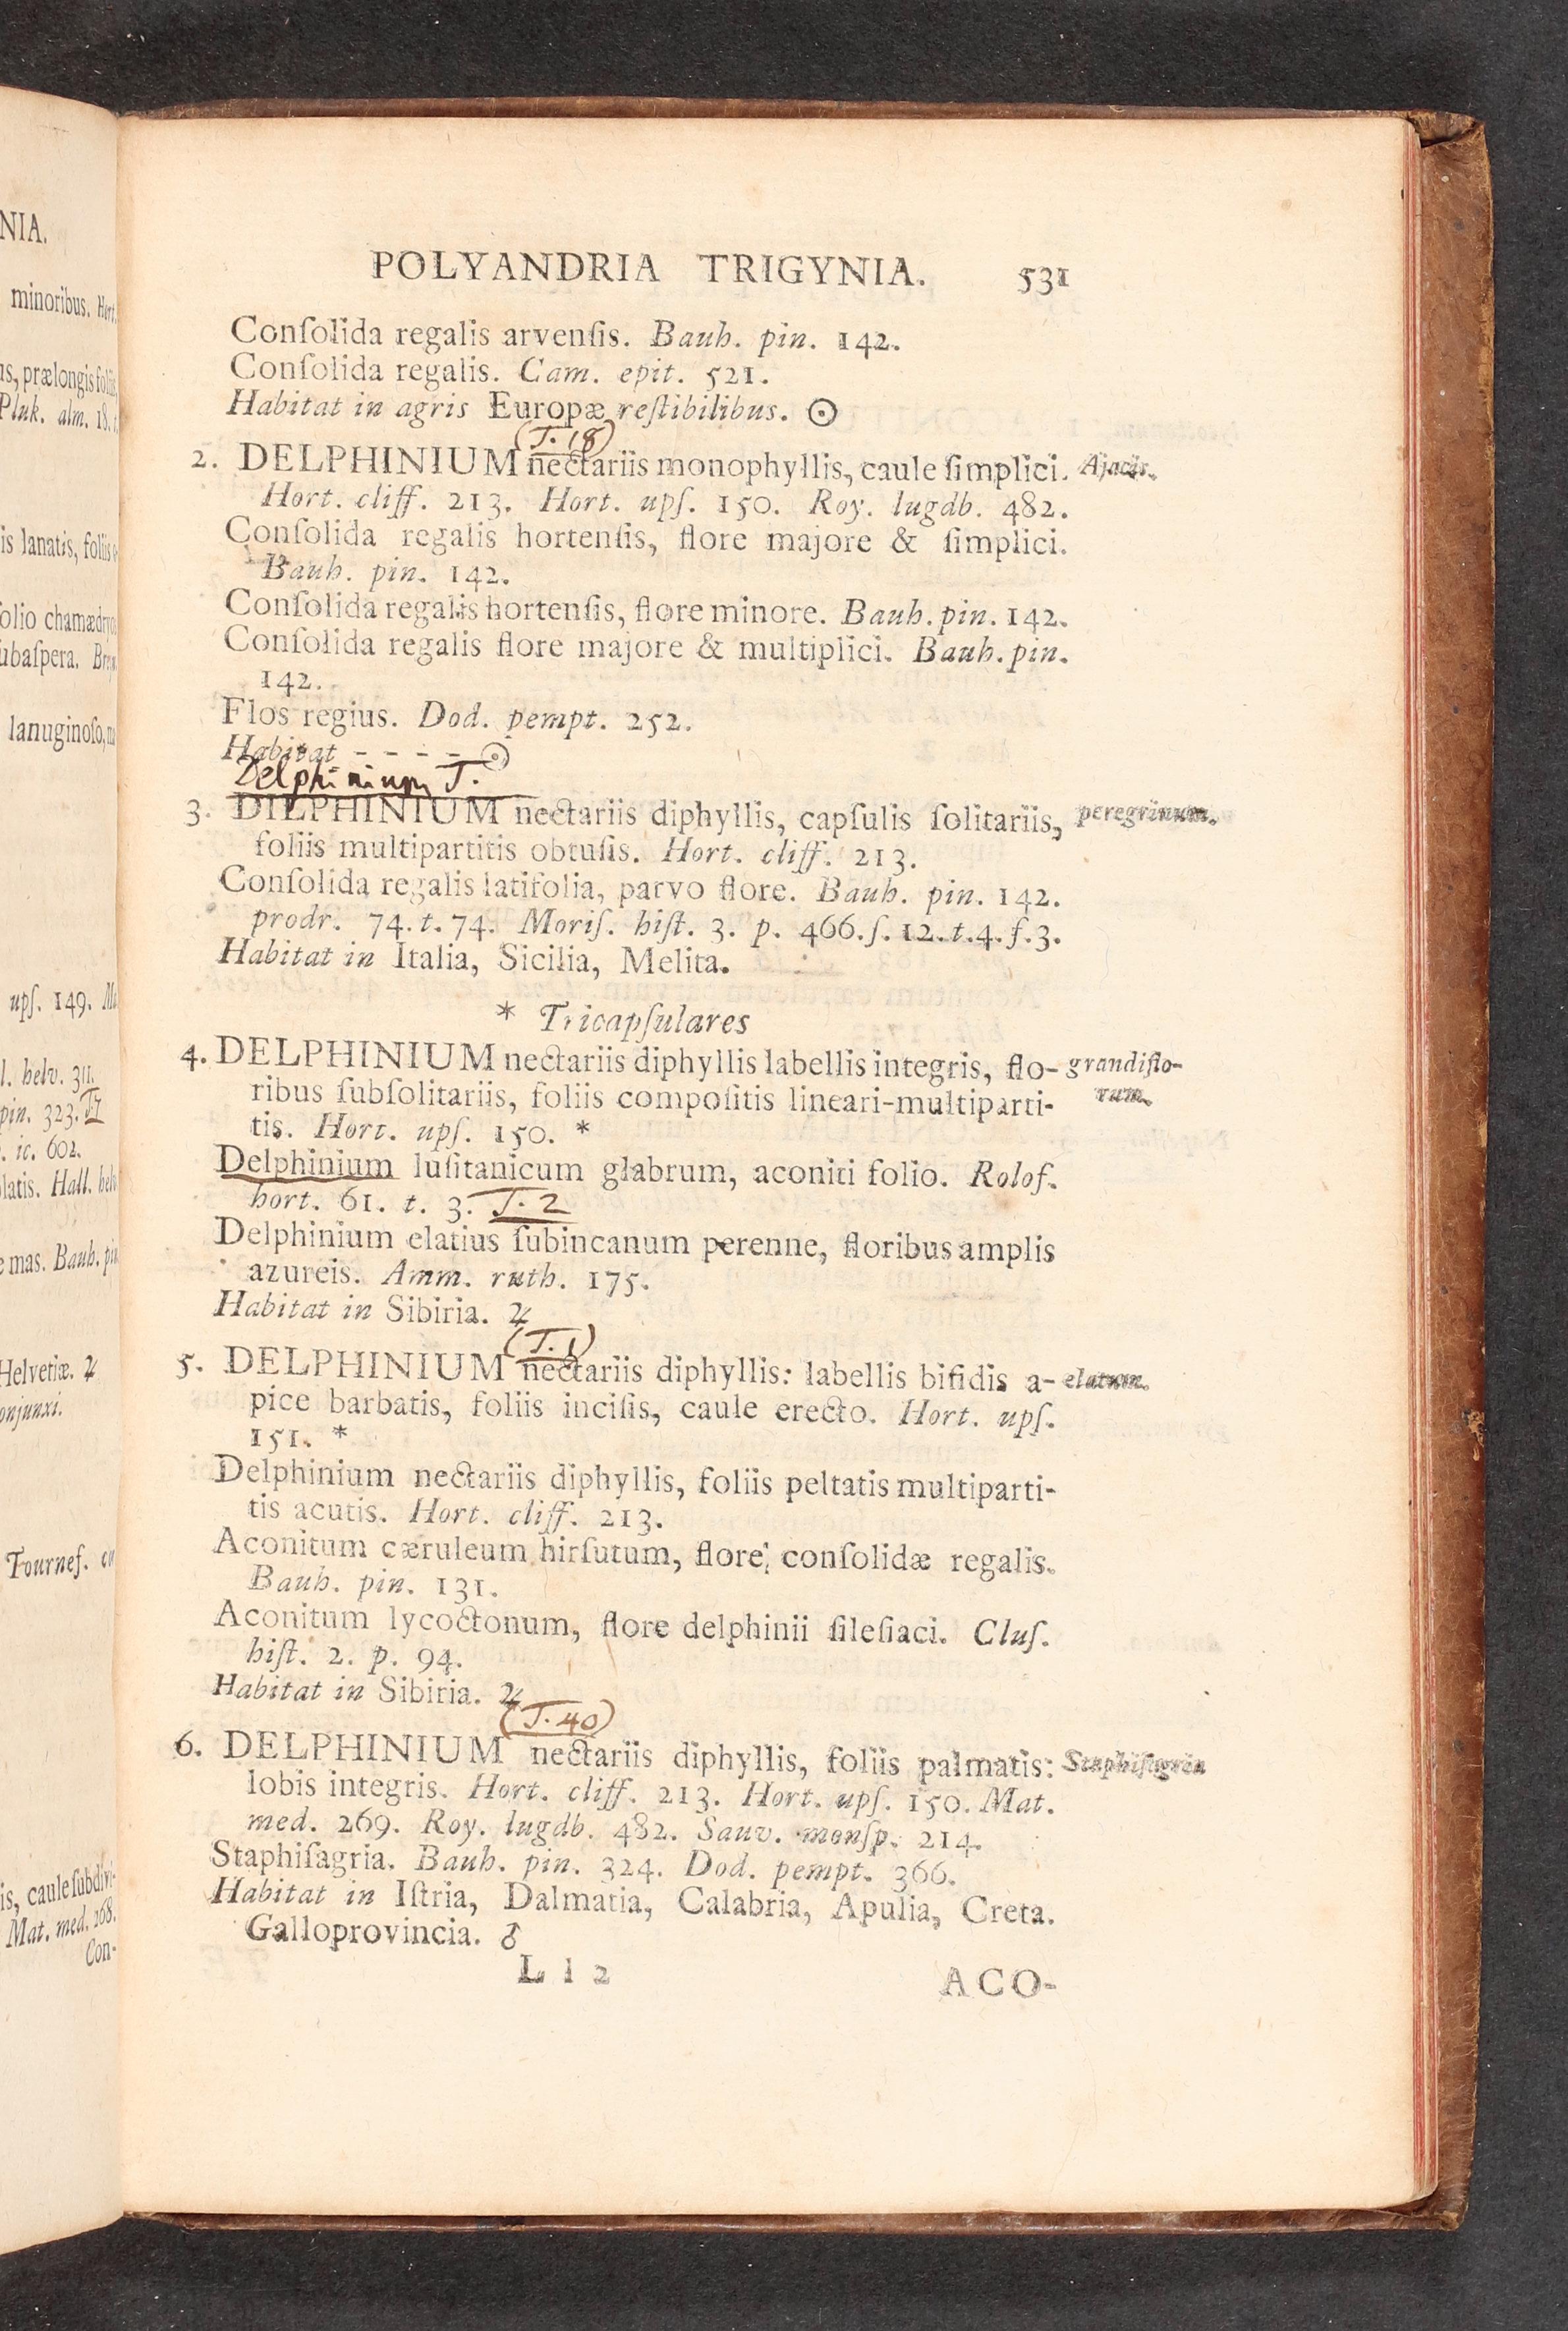 NIA.
minoribus. Hort.
us, prælongis foliis
Pluk. alm. 18. t.
is lanatis, foliis
folio chamædryos
ubaſpera.
lanuginoſo,
upſ. 149.
l. helv. 311.
pin. 323. T. 7
ic. 602.
latis. Hall. helv
e mas. Bauh. pin
Helvetiæ. ♃
onjunxi.
Tournef.
is, caule ſubdivi-
Mat. med. 268.
Con-
POLYANDRIA TRIGYNIA. 531
Conſolida regalis arvenſis. Bauh. pin. 142.
Conſolida regalis. Cam. epit. 521.
Habitat in agris Europæ reſtibilibus. ☉
(T. 18)
2. DELPHINIUM nectariis monophyllis, caule ſimplici. Ajacis.
Hort. cliff. 213. Hort. upſ. 150. Roy. lugdb. 482.
Conſolida regalis hortenſis, flore majore & ſimplici.
Bauh. pin. 142.
Conſolida regalis hortenſis, flore minore. Bauh. pin. 142.
Conſolida regalis flore majore & multiplici. Bauh. pin.
142.
Flos regius. Dod. pempt. 252.
Habitat - - - - ☉
Delphinium T.
3. DILPHINIUM nectariis diphyllis, capſulis ſolitariis, peregrinum.
foliis multipartitis obtuſis. Hort. cliff. 213.
Conſolida regalis latifolia, parvo flore. Bauh. pin. 142.
prodr. 74. t. 74. Moriſ. hiſt. 3. p. 466. ſ. 12. t. 4. f. 3.
Habitat in Italia, Sicilia, Melita.
* Tricapſulares
4. DELPHINIUM nectariis diphyllis labellis integris, flo- grandiflo-
ribus ſubſolitariis, foliis compoſitis lineari-multiparti- rum.
tis. Hort. upſ. 150. *
Delphinium luſitanicum glabrum, aconiti folio. Rolof.
hort. 61. t. 3. T. 2
Delphinium elatius ſubincanum perenne, floribus amplis
azureis. Amm. ruth. 175.
Habitat in Sibiria. ♃
(T. 1)
5. DELPHINIUM nectariis diphyllis: labellis bifidis a- elatum.
pice barbatis, foliis inciſis, caule erecto. Hort. upſ.
151. *
Delphinium nectariis diphyllis, foliis peltatis multiparti-
tis acutis. Hort. cliff. 213.
Aconitum cæruleum hirſutum, flore conſolidæ regalis.
Bauh. pin. 131.
Aconitum lycoctonum, flore delphinii ſileſiaci. Cluſ.
hiſt. 2. p. 94.
Habitat in Sibiria. ♃
(T. 40)
6. DELPHINIUM nectariis diphyllis, foliis palmatis: Staphiſagria
lobis integris. Hort. cliff. 213. Hort. upſ. 150. Mat.
med. 269. Roy. lugdb. 482. Sauv. monſp. 214.
Staphiſagria. Bauh. pin. 324. Dod. pempt. 366.
Habitat in Iſtria, Dalmatia, Calabria, Apulia, Creta.
Galloprovincia. ♂
L l 2 ACO-